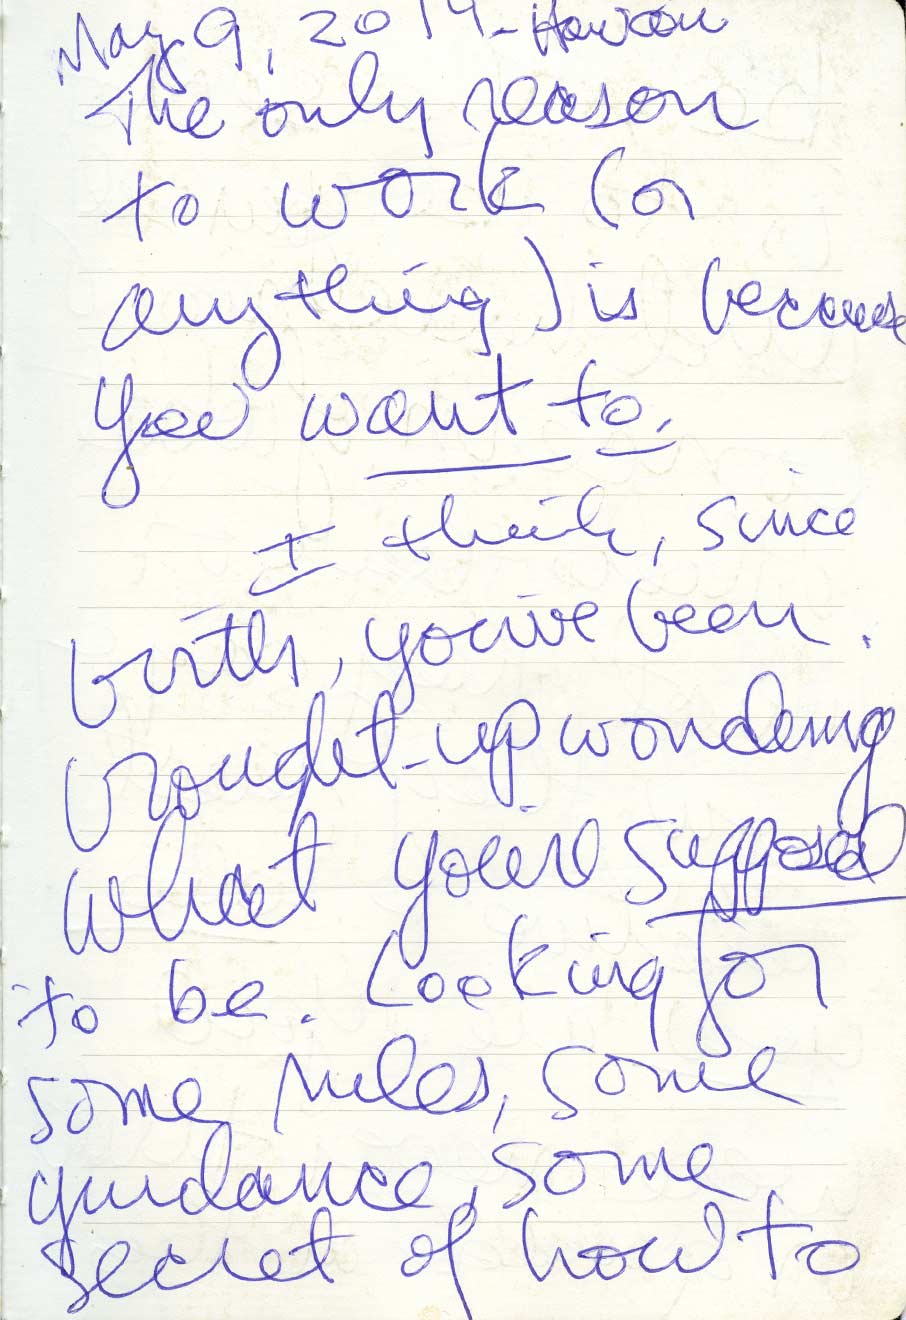 May 9, 2014 -
The only reason
to work (or
anything) is because
you want to.
I think, since
birth, you've been
brought-up wondering
what you're supposed
to be. Looking for
some rules, some
guidance, some
secret of how to